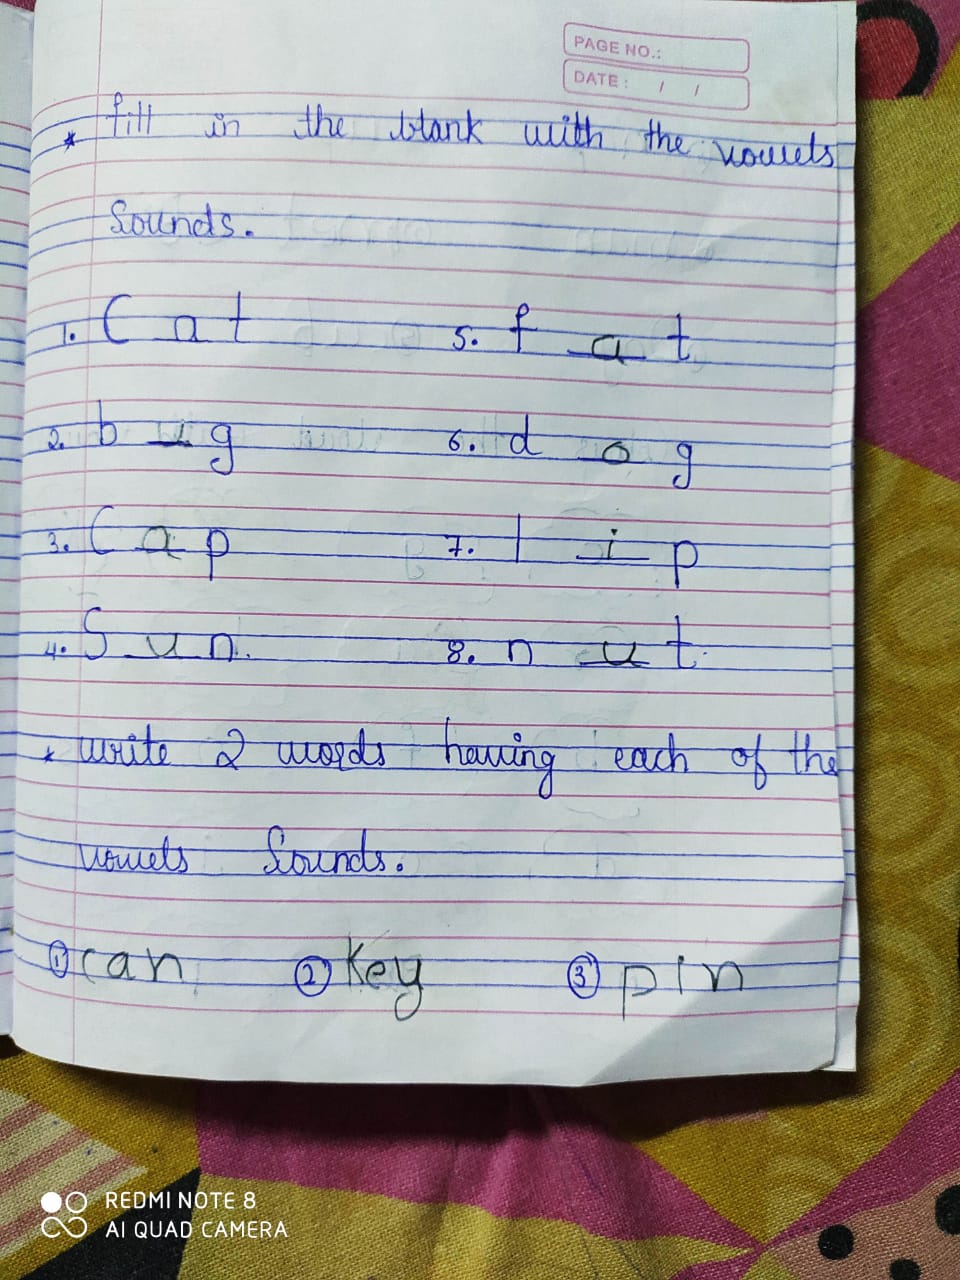 PAGE NO.:
DATE: / /
* fill in the blank with the vowels
Sounds.
1. C a t 5. f a t
2. b u g 6. d o g
3. C a p 7. l i p
4. S u n. 8. n u t.
* write 2 words having each of the
vowels Sounds.
① can ② Key ③ pin
REDMI NOTE 8
AI QUAD CAMERA